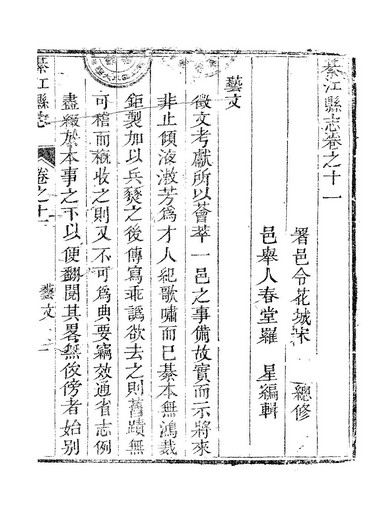 綦江縣志卷之十一
署邑令花城宋　總修
邑舉人春堂羅　星編輯
藝文
徵文考獻所以薈萃一邑之事備故實而示將來
非止傾液漱芳爲才人紀歌嘯而已綦本無鴻裁
鉅製加以兵燹之後傳寫乖譌欲去之則舊蹟無
可稽而槪收之則又不可爲典要竊效通省志例
盡綴於本事之下以便翻閱其畧無依傍者始別
綦江縣志
卷之十一
藝文
一